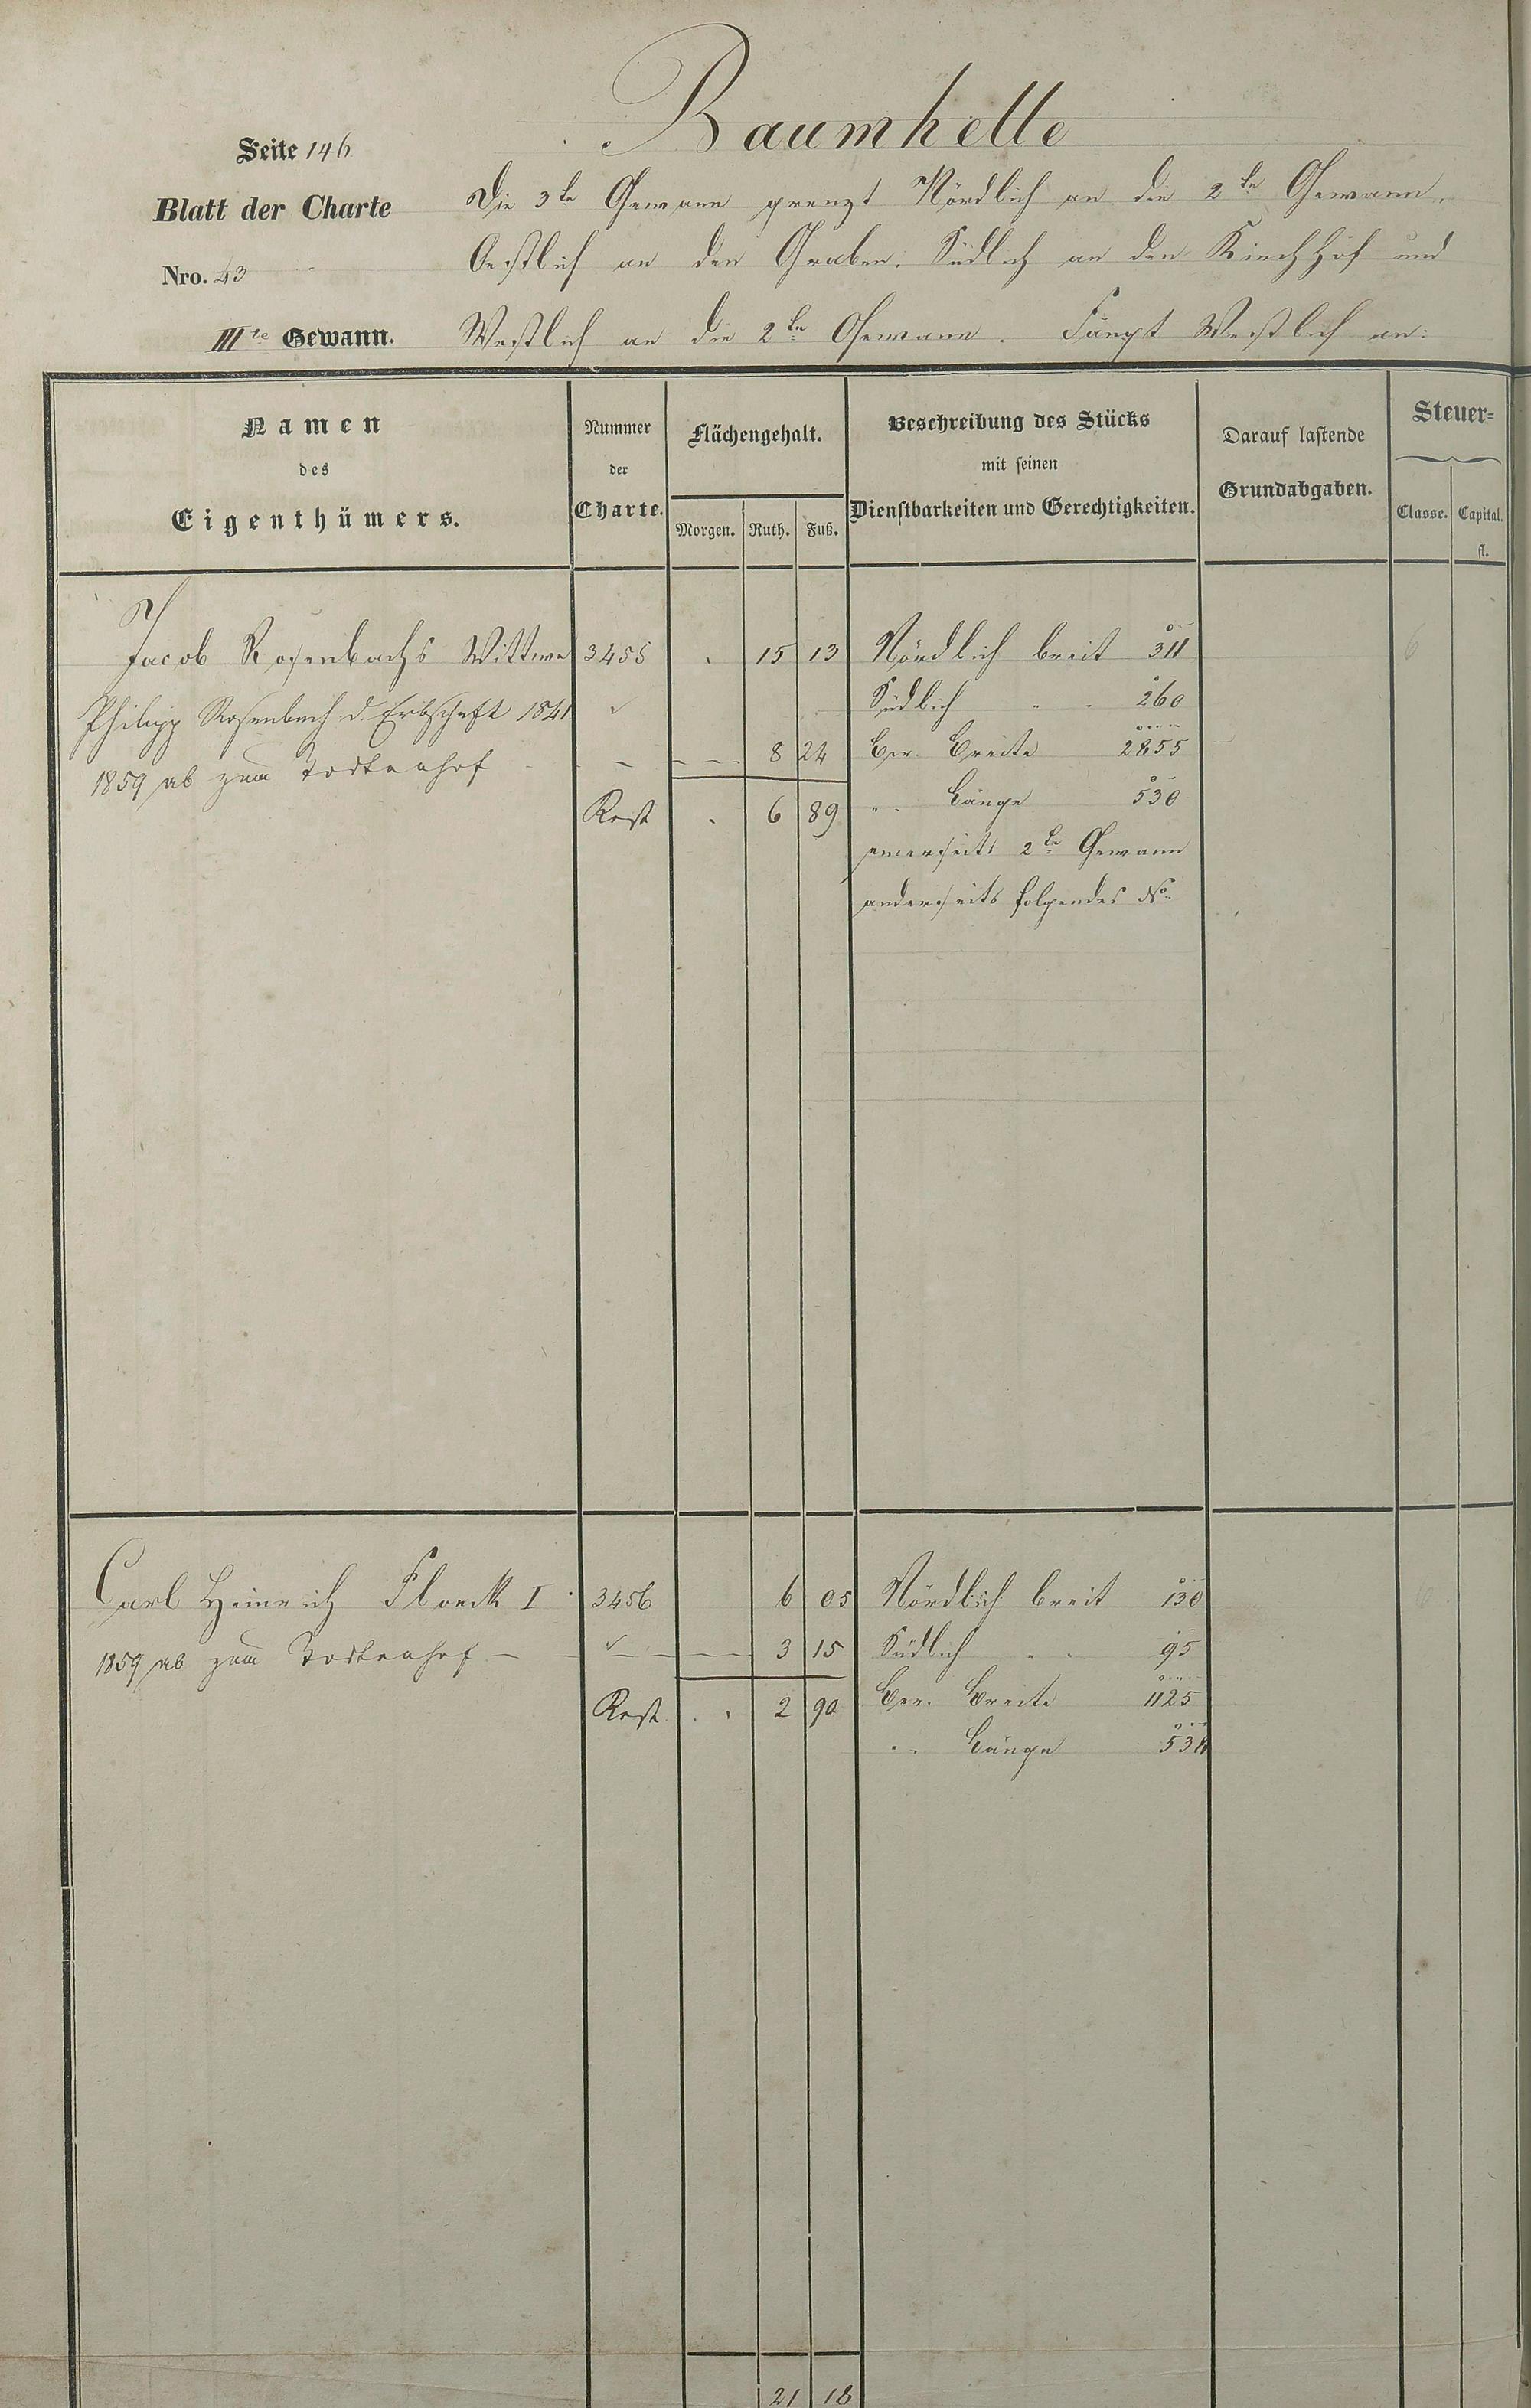 Baumhelle
Seite 146
Blatt der Charte
Nro. 43
IIIte Gewann.
Die 3te Gewann grenzt Nördlich an die 2te Gewann,
Oestlich an den Graben, Südlich an den Kirchhof und
Westlich an die 2te Gewann. Fängt Westlich an:
Namen des Eigenthümers.
Nummer der Charte.
Flächengehalt.
Morgen. Ruth. Fuß.
Beschreibung des Stücks mit seinen Dienstbarkeiten und Gerechtigkeiten.
Darauf lastende Grundabgaben.
Steuer=
Classe. Capital. fl.
Jacob Rosenbachs Wittwe 3455 15 13 Nördlich breit 311 6
Philipp Rosenbach d. Erbschaft 1841 Südlich " " 260
1859 ab zum Todtenhof - - - 8 24 Ber. Breite 2855
Rest 6 89 " Länge 530
einerseits 2te Gewann
anderseits folgendes No
Carl Heinrich Floeck I 3456 6 05 Nördlich breit 130 6
1859 ab zum Todtenhof - - - 3 15 Südlich " " 95
Rest 2 90 Ber. Breite 1125
" Länge 538
21 18